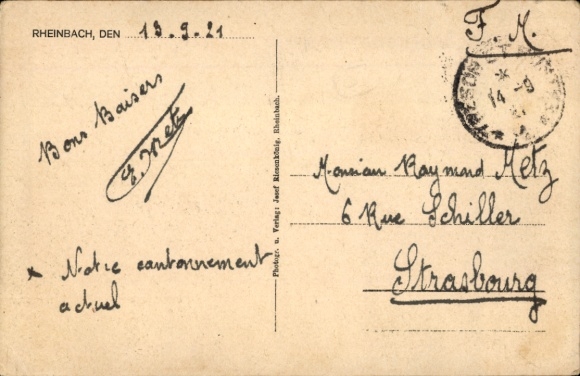 RHEINBACH, DEN 13.9.21
F. M.
TRESOR ET POSTES
14 -9
Bons Baisers
E. Metz
* Notre cantonnement
actuel
Photogr. u. Verlag: Josef Riesenkönig, Rheinbach.
Monsieur Raymond Metz
6 Rue Schiller
Strasbourg